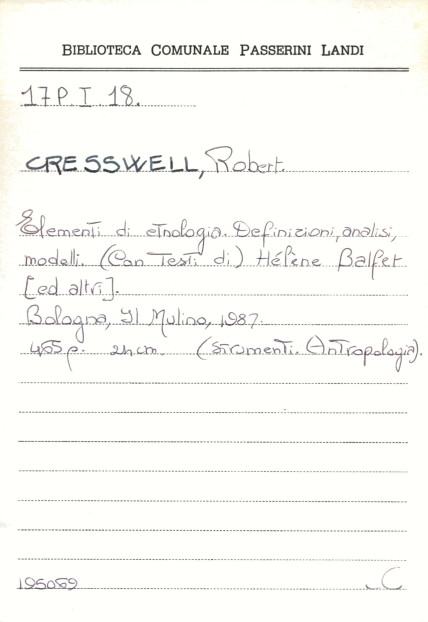 BIBLIOTECA COMUNALE PASSERINI LANDI
17 P. I 18.
CRESSWELL, Robert.
Elementi di etnologia. Definizioni, analisi,
modelli. (Con Testi di) Hélène Balfet
[ed altri].
Bologna, Il Mulino, 1987.
455 p. 21 cm. (Strumenti. Antropologia).
195069
C